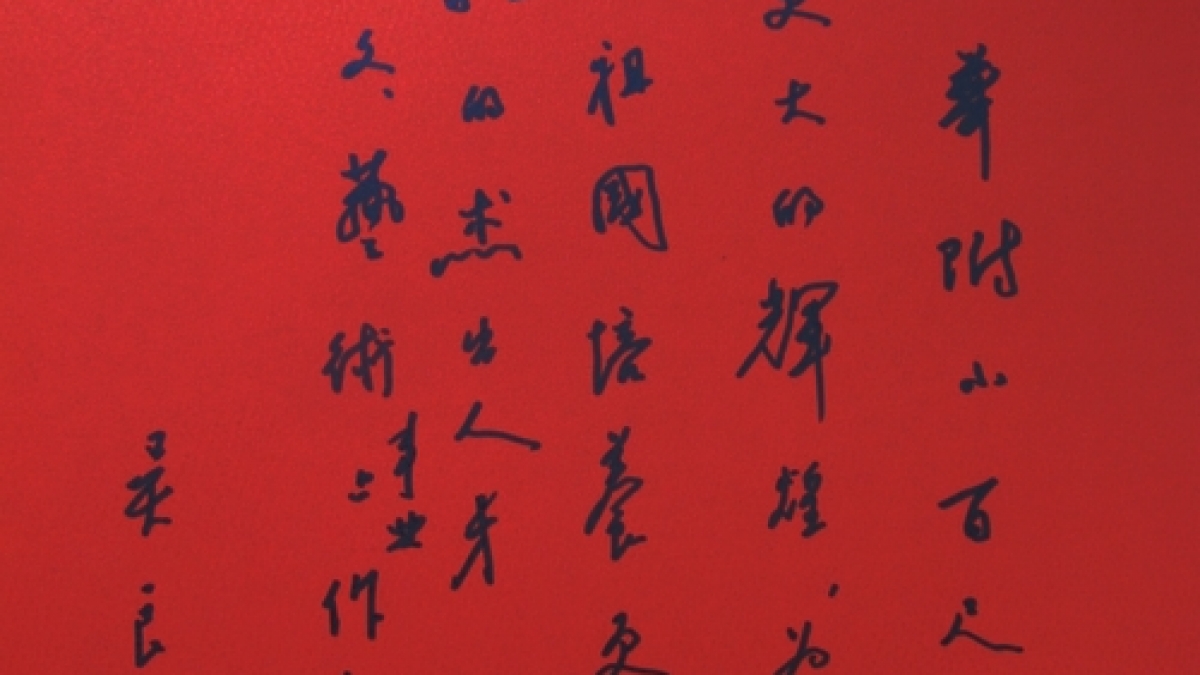 華附小百尺
更大的輝煌，为
祖國培養更
的杰出人才
文、藝術事业上作
吴良